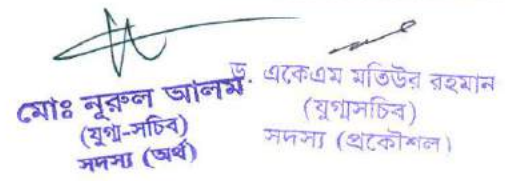 মোঃ নূরুল আলম
(যুগ্ম-সচিব)
সদস্য (অর্থ)
ড. একেএম মতিউর রহমান
(যুগ্মসচিব)
সদস্য (প্রকৌশল)